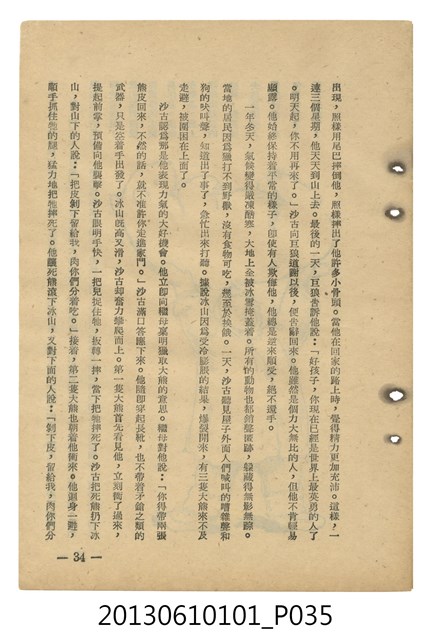 出現，照樣用尾巴摔倒他，照樣摔出了他許多小骨頭。當他在回家的路上時，覺得精力更加充沛。這樣，一
連三個星期，他天天到山上去。最後的一天，巨狼告訴他說：「好孩子，你現在已經是世界上最英勇的人了
。明天起，你不用再來了。」沙古向巨狼道謝以後，便告辭回來。他雖然是個力大無比的人，但他不肯輕易
顯露。他始終保持着平常的樣子，即使有人欺侮他，他總是逆來順受，絕不還手。
一年冬天，氣候變得嚴凍酷寒，大地上全被冰雪掩蓋着。所有的動物也都銷聲匿跡，躲藏得無影無蹤。
當地的居民因為獵打不到野獸，沒有食物可吃，幾至於挨餓。一天，沙古聽見屋子外面人們喊叫的嘈雜聲和
狗的吠叫聲，知道出了事了，急忙出來打聽。據說冰山因為受冷膨脹的結果，爆裂開來，有三隻大熊來不及
走避，被圍困在上面了。
沙古認為那是他表現力氣的大好機會。他立即向繼母稟明獵取大熊的意思。繼母對他說：「你得帶兩張
熊皮回來，不然的話，就不准許你走進家門。」沙古滿口答應下來。他隨即穿起長靴，也不帶着矛鎗之類的
武器，只是空着手出發了。冰山既高又滑，沙古却奮力攀爬而上。第一隻大熊首先看見他，立刻衝了過來，
提起前掌，預備向他襲擊。沙古眼明手快，一把兒捉住牠，板轉一摔，當下把牠摔死了。沙古把死熊扔下冰
山，對山下的人說：「把皮剝下留給我，肉你們分着吃。」接着，第二隻大熊也朝着他衝來。他閃身一避，
順手抓住牠的腿，猛力地把牠摔死了。他讓死熊滾下冰山，又對下面的人說：「剝下皮，留給我，肉你們分
— 34 —
20130610101_P035